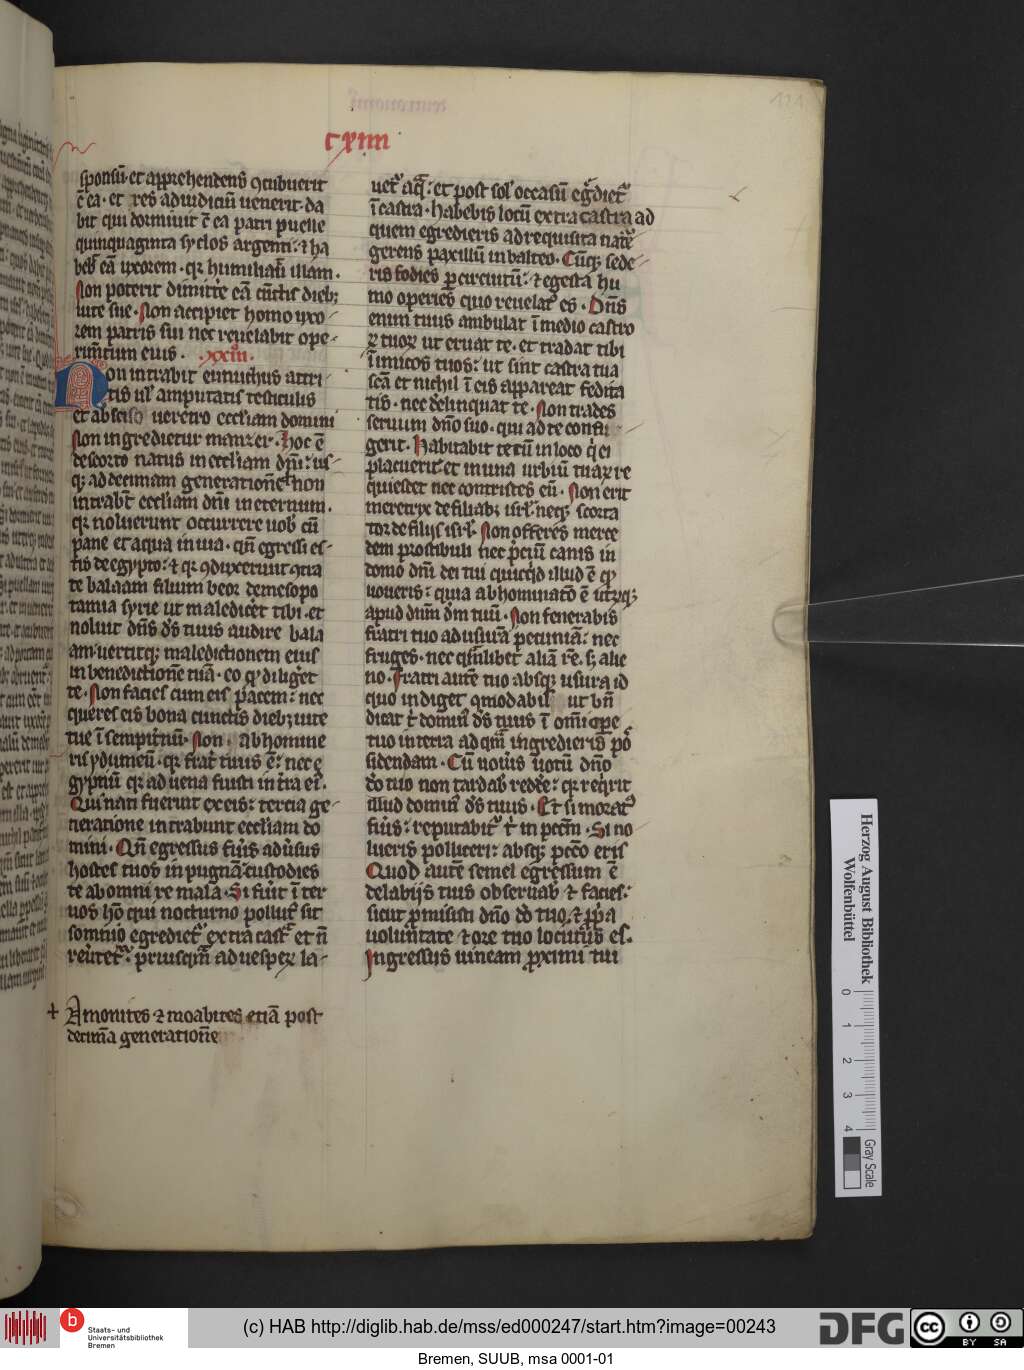 121
cxiiii
sponsū. et apprehendens ꝯcubuerit
c̄ ea. et res ad iudiciū uenerit. da
bit qui dormiuit c̄ ea patri puelle
quinquaginta syclos argenti: ⁊ ha
beb̓ eā uxorem. qꝛ humiliauͥ illam.
Non poterit dimitt̓e eā cūctis dieb;
uite sue. Non accipiet homo uxo-
rem patris sui nec reuelabit ope-
rimtum eius. xxiii.
Non intrabit eunuchus attri-
tis ul̓ amputatis testiculis
et absciso ueretro eccl̓iam domini
Non ingredietur manzer. hoc ē
de scorto natus in eccl̓iam dn̄i: us-
q; ad decimam generationē non
intrabt̄ eccl̓iam dn̄i in eternum.
qꝛ noluerunt occurrere uob̓ cū
pane et aqua in uia. qn̄ egressi es-
tis de egypto: ⁊ qꝛ ꝯduxerunt ꝯtra
te balaam filium beor de mesopo
tamia syrie ut malediceret tibi. et
noluit dn̄s ds̄ tuus audire bala
am. uertitq; maledictionem eius
in benedictionē tuā. eo qꝫ diliget
te. Non facies cum eis pacem: nec
queres eis bona cunctis dieb; uite
tue ī sempitnū. Non abhomine
ris ydumeū. qꝛ frat̓ tuus ē: nec e
gyptiū qꝛ aduena fuisti in t̓ra ei᷒.
Qui nati fuerint ex eis: tercia ge-
neratione intrabunt eccl̓iam do
mini. Qn̄ egressus fuis adusus
hostes tuos in pugnā: custodies
te ab omni re mala. Si fuīt ī ter
uos hō qui nocturno pollut̓ sit
sompno egrediet̓ extra cast̓ et n̄
reuertet̓: priusqm̄ ad uesperꝫ la-
uet̓ aq̄: et post sol̓ occasū eg̓diet̓
ī castra. Habebis locū extra castra ad
quem egredieris ad requisita nat̓e
gerens paxillū in balteo. Cūq; sede-
ris fodies ꝑ circuitū: ⁊ egesta hu
mo operies quo reuelat̓ es. Dn̄s
enim tuus ambulat ī medio castro
ꝝ tuoꝝ ut eruat te. et tradat tibi
īimicos tuos: ut sint castra tua
scā et nichil ī eis appareat fedita
tis. nec delinquat te. Non trades
seruum dn̄o suo. qui ad te confu-
gerit. Habitabit tecū in loco qͥ ei
placuerit et in una urbiū tuaꝝ re
quiescet nec contristes eū. Non erit
meretrix de filiab; isrl̓. neq; scorta
tor de filijs isrl̓. Non offeres merce
dem prostibuli nec p̓ciū canis in
domo dn̄i dei tui quicqͥd illud ē qꝫ
uoueris: quia abhominatō ē utrūq;
apud dnm̄ dm̄ tuū. Non fenerabis
fratri tuo ad usurā pecuniā: nec
fruges. nec qm̄libet aliā rē. s; alie
no. Fratri autē tuo absq; usura id
quo indiget ꝯmodabis ut bn̄
dicat t̓ domin᷒ ds̄ tuus ī om̄i ope
tuo in terra ad qm̄ ingredieris po
sidendam. Cū uouis uotū dn̄o
do tuo non tardab̓ redde: qꝛ reqͥrit
illud domin᷒ ds̄ tuus. Et si morat᷒
fuis: reputabit᷒ t̓ in pecc̄m. Si no
lueris polliceri: absq; pcc̄o eris
Quod autē semel egressum ē
de labijs tuis obseruab ⁊ facies:
sicut ꝓmisisti dn̄o do tuo. ⁊ ꝓp̓a
uolūtate ⁊ ore tuo locutus es.
Ingressus uineam ꝓximi tui
+ Amonites ⁊ moabites etiā post
decimā generationē
Herzog August Bibliothek
Wolfenbüttel
0 1 2 3 4
Gray Scale
b
Staats- und
Universitätsbibliothek
Bremen
(c) HAB http://diglib.hab.de/mss/ed000247/start.htm?image=00243
DFG
cc BY SA
Bremen, SUUB, msa 0001-01